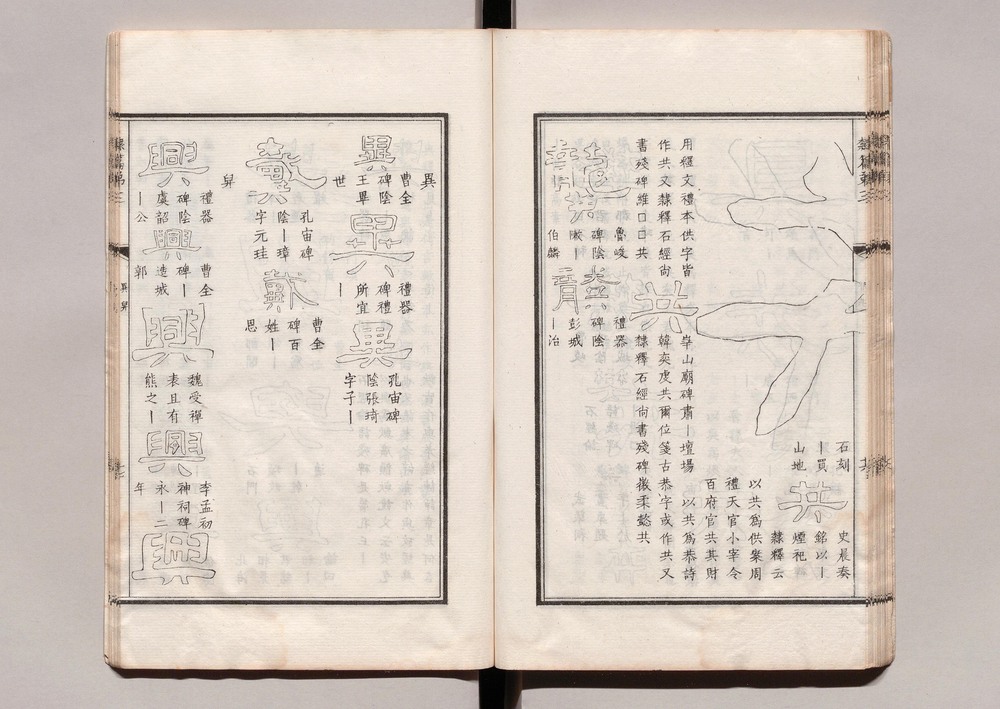 石刻
丨買
山地
共
史晨奏
銘以丨
煙祀
隸釋云
以共爲供案周
禮天官小宰令
百府官共其財
用釋文禮本供字皆
作共又隸釋石經尚
書殘碑維口口共
共
華山廟碑肅丨壇場
以共爲恭詩
韓奕虔共爾位箋古恭字或作共又
隸釋石經尚書殘碑徽柔懿共
龔
魯峻
碑陰
陔丨
伯麟
龔
禮器
碑陰
彭城
丨治
異
異
曹全
碑陰
王畢
世
異
禮器
碑禮
所宜
丨
異
孔宙碑
陰張琦
字子丨
戴
孔宙碑
陰丨璋
字元珪
戴
曹全
碑百
姓丨
恩
舁
興
禮器
碑陰
虞韶
丨公
興
曹全
碑丨
造城
郭
興
魏受禪
表且有
熊之丨
興
李孟初
神祠碑
永丨二
年
興
異舁